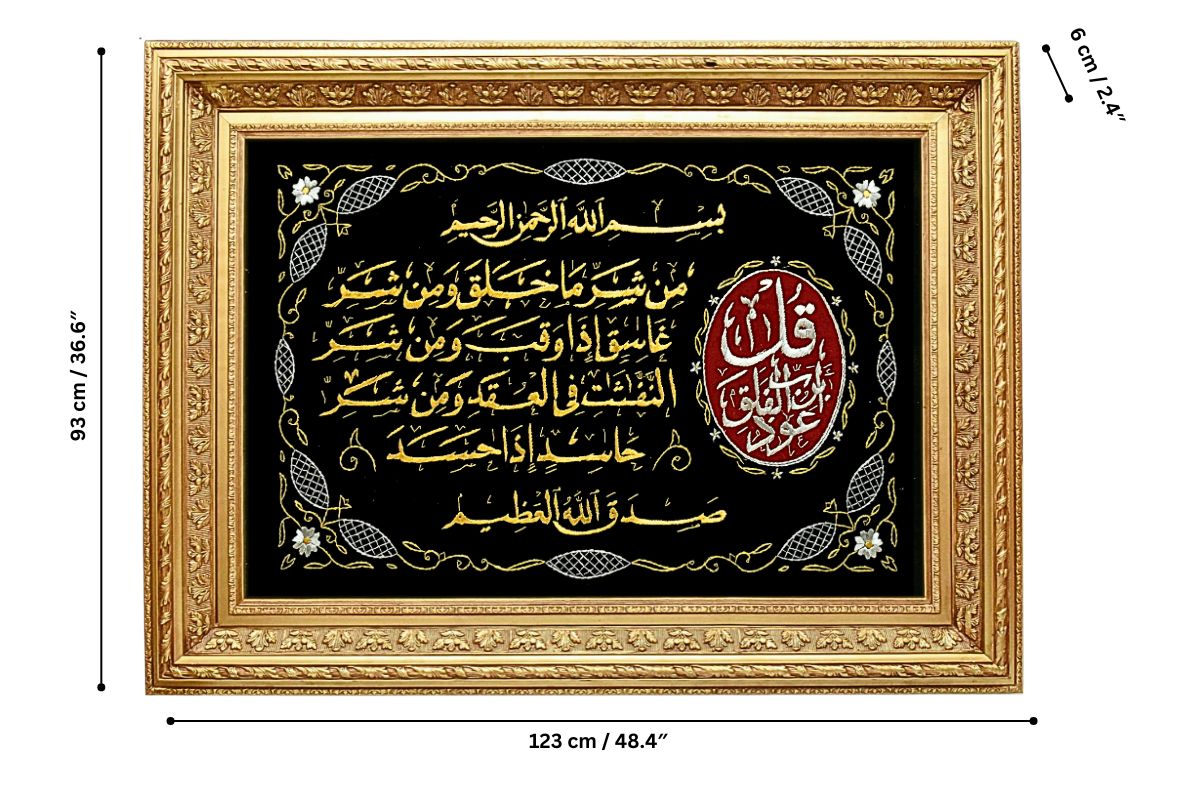 6 cm / 2.4″
93 cm / 36.6″
بسم الله الرحمن الرحيم
قل
أعوذ
برب الفلق
من شر ما خلق ومن شر
غاسق إذا وقب ومن شر
النفثت في العقد ومن شر
حاسد إذا حسد
صدق الله العظيم
123 cm / 48.4″